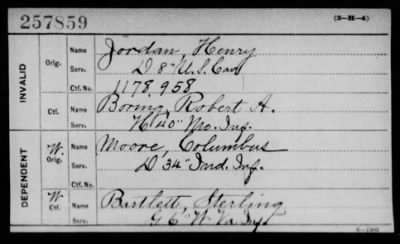 257859
(3-H-4)
INVALID
Orig.
Name Jordan, Henry
Serv. D 8" U.S. Cav
Ctf. No. 1178,958
Ctf.
Name Boring, Robert A.
Serv. H 40" Mo. Inf.
DEPENDENT
W. Orig.
Name Moore, Columbus
Serv. D 34" Ind. Inf.
Ctf. No.
W Ctf.
Name Bartlett, Sterling
Serv. G 6" W. Va Inf.